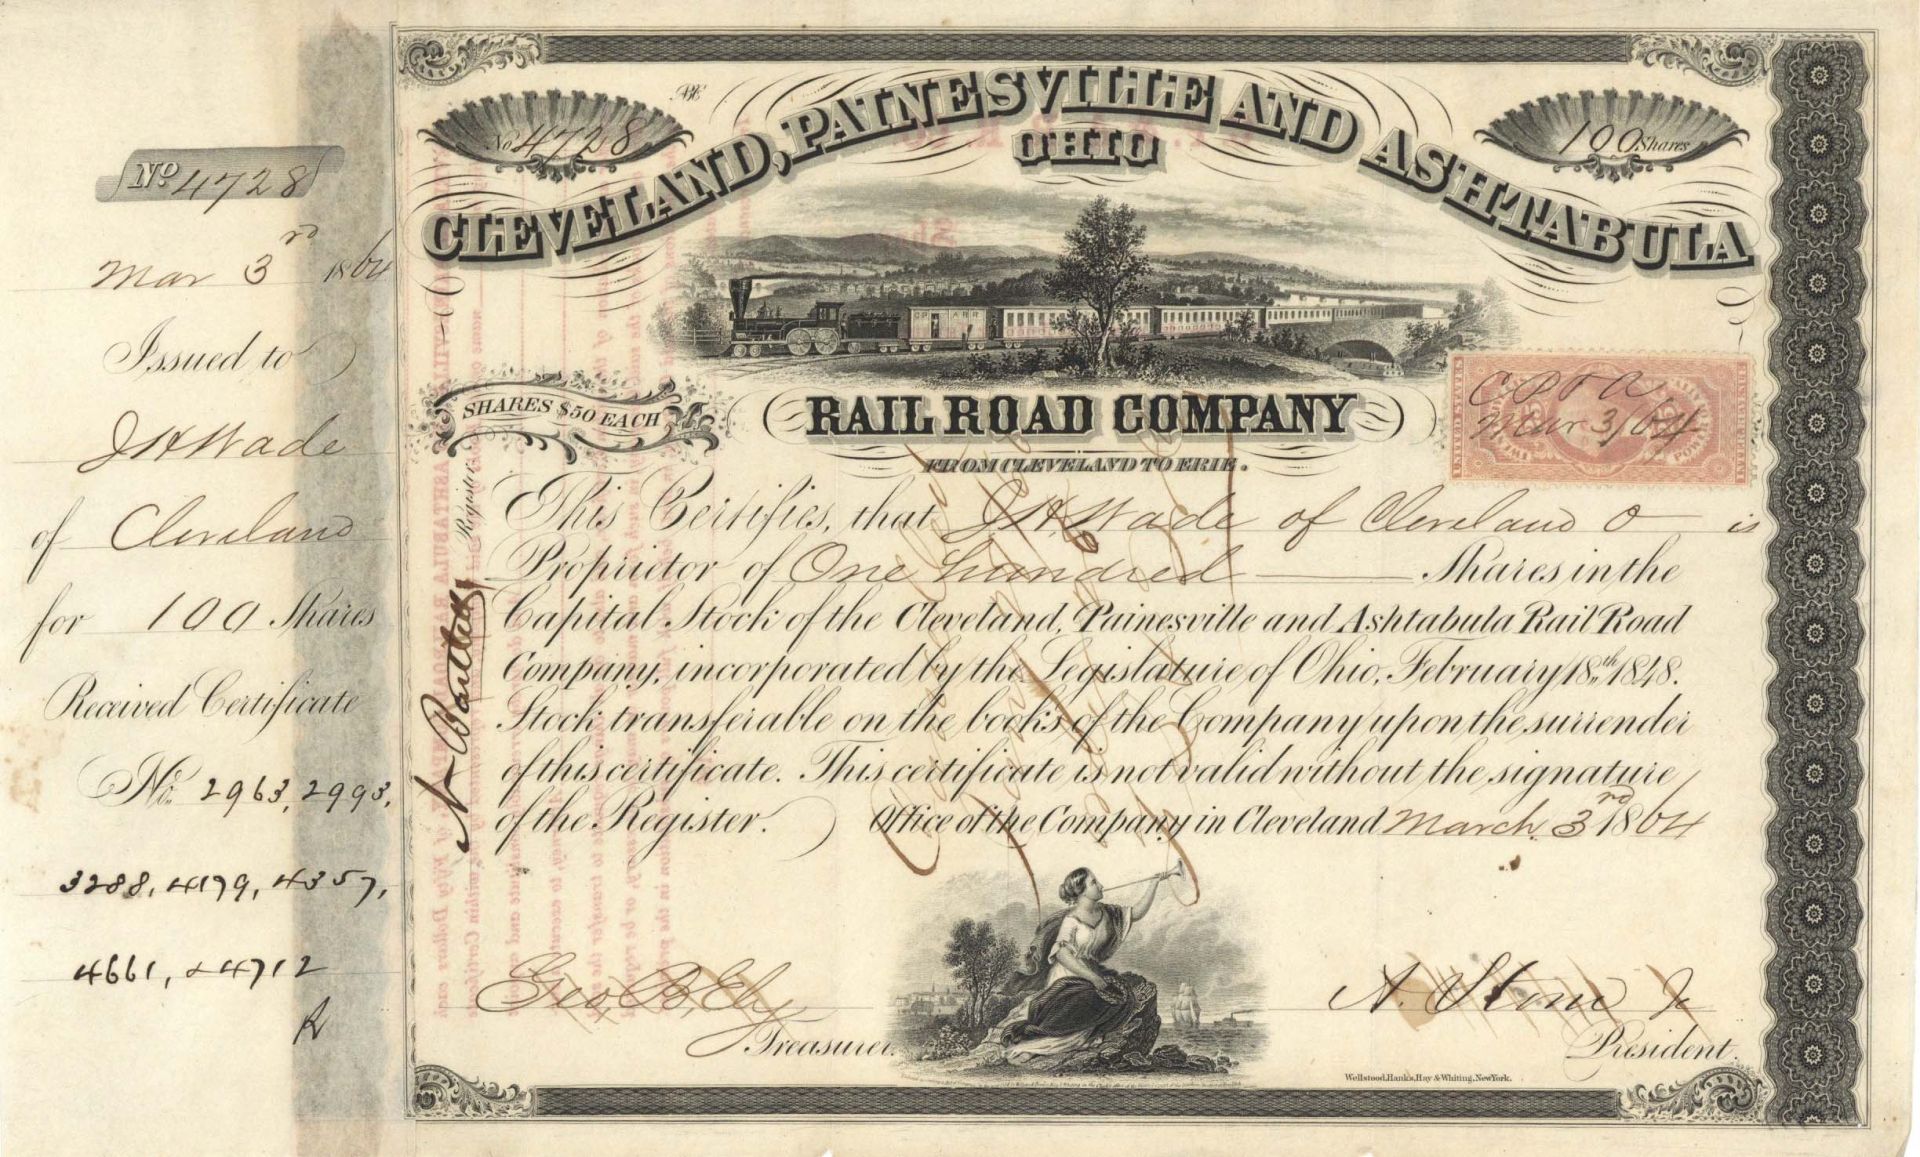 No. 4728
Mar 3rd 1864
Issued to
J H Wade
of Cleveland
for 100 Shares
Received Certificate
No. 2963, 2993,
3288, 4179, 4357,
4661, & 4712
No 4728
100 Shares
CLEVELAND, PAINESVILLE AND ASHTABULA
OHIO
SHARES $50 EACH
RAIL ROAD COMPANY
FROM CLEVELAND TO ERIE.
UNITED STATES
INTER. REV.
C P & A
Mar 3/64
This Certifies, that J. H. Wade of Cleveland O is
Proprietor of One hundred Shares in the
Capital Stock of the Cleveland, Painesville and Ashtabula Rail Road
Company, incorporated by the Legislature of Ohio, February 18th 1848.
Stock transferable on the books of the Company upon the surrender
of this certificate. This certificate is not valid without the signature
of the Register. Office of the Company in Cleveland March 3rd 1864
Register
Geo. B. Ely
Treasurer.
A. Stone Jr
President.
Wellstood, Hanks, Hay & Whiting, New York.